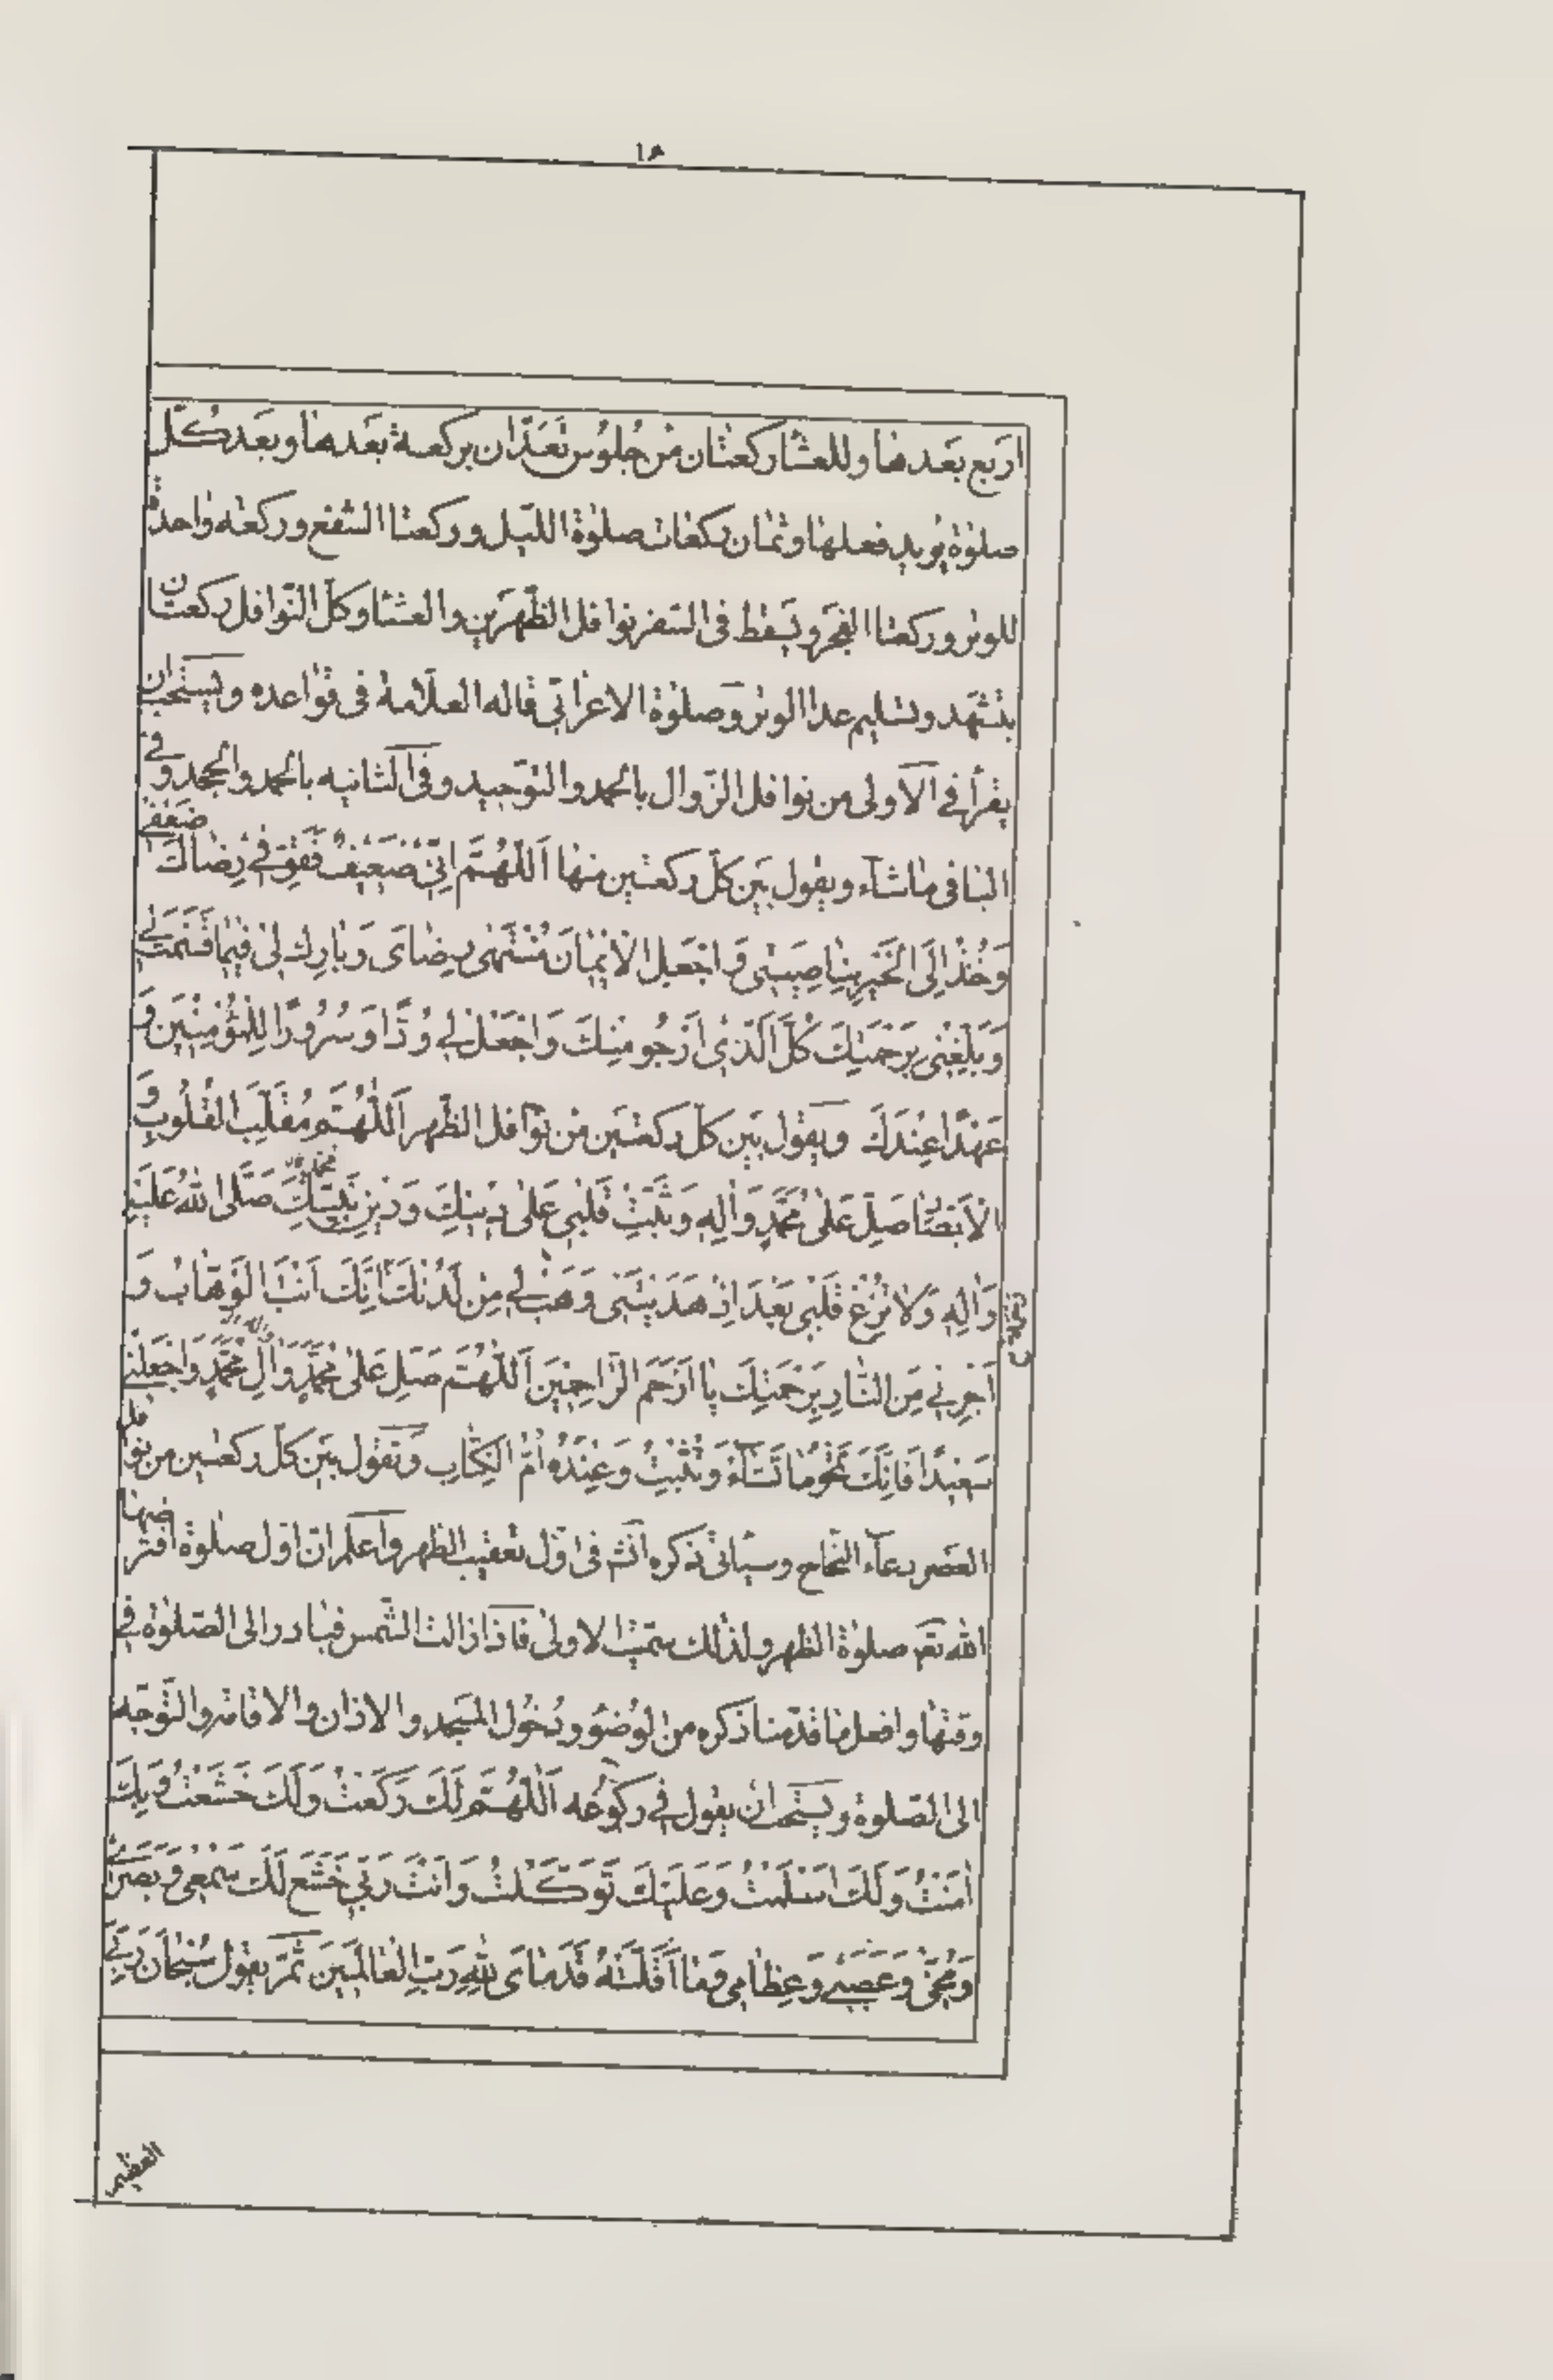 ١٨
اربع بعدها وللعشا ركعتان من جلوس تعدّان بركعة بعدها وبعد كلّ
صلوة يريد فعلها وثمان ركعات صلوة الليل وركعتا الشفع وركعة واحدة
للوتر وركعتا الفجر وتسقط في السفر نوافل الظهرين والعشا وكل النّوافل ركعتان
بتشهد وتسليم عدا الوتر وصلوة الاعرابي قاله العلّامة في قواعده ويستحبّ ان
يقرأ في الاولى من نوافل الزّوال بالحمد والتوحيد وفي الثانيه بالحمد والجحد وفي
البافى ماشآء ويقول بين كلّ ركعتين منها اَللّهُمَّ اِنّي ضَعيفٌ فَقَوِّ في رِضاكَ ضَعْفي
وَخُذْ اِلَى الْخَيْرِ بِناصِيَتي وَاجْعَلِ الْايمانَ مُنْتَهى رِضاىَ وَبارِك لي فيما قَسَمْتَ لي
وَبَلِّغْنى بِرَحْمَتِكَ كُلَّ الَّذي اَرْجُو مِنْكَ وَاجْعَلْ لي وُدًّا وَسُرُورًا لِلْمُؤْمِنينَ وَ
عَهْدًا عِنْدَكَ ويقول بين كلّ ركعتين من نوافل الظهر اَللّهُمَّ مُقَلِّبَ الْقُلُوبِ وَ
الْاَبْصارِ صَلِّ عَلى مُحَمَّدٍ وَالِهِ وَثَبِّتْ قَلْبي عَلى دينِكَ وَدينِ نَبِيِّكَ مُحَمَّدٍ صَلَّى اللهُ عَلَيْهِ
وَالِهِ وَلا تُزِغْ قَلْبي بَعْدَ اِذْ هَدَيْتَني وَهَبْ لي مِنْ لَدُنْكَ اِنَّكَ اَنْتَ الْوَهّابُ وَ
اَجِرْني مِنَ النّارِ بِرَحْمَتِكَ يا اَرْحَمَ الرّاحِمينَ اَللّهُمَّ صَلِّ عَلى مُحَمَّدٍ وَالِ مُحَمَّدٍ وَاجْعَلْني
سَعيدًا فَاِنَّكَ تَمْحُو ما تَشآءُ وَتُثْبِتُ وَعِنْدَهُ اُمُّ الْكِتابِ وتقول بين كلّ ركعتين من نوافل
العصر بدعآء النّجاح وسياتى ذكره انش في اوّل تعقيب الظهر واعلم ان اوّل صلوة افترضها
الله تعم صلوة الظهر ولذلك سمّيت الاولى فاذا زالت الشّمس فبادر الى الصّلوة في
وقتها وافعل ما قدّمنا ذكره من الوضوء ودخول المسجد والاذان والاقامة والتّوجّه
الى الصّلوة ويستحب ان يقول في ركوعه اَللّهُمَّ لَكَ رَكَعْتُ وَلَكَ خَشَعْتُ وَبِكَ
امَنْتُ وَلَكَ اَسْلَمْتُ وَعَلَيْكَ تَوَكَّلْتُ وَاَنْتَ رَبّي خَشَعَ لَكَ سَمْعي وَبَصَري
وَمُخّي وَعَصَبي وَعِظامي وَما اَقَلَّتْهُ قَدَماىَ لِلّهِ رَبِّ الْعالَمينَ ثمّ يقول سُبْحانَ رَبِّيَ
العظيم